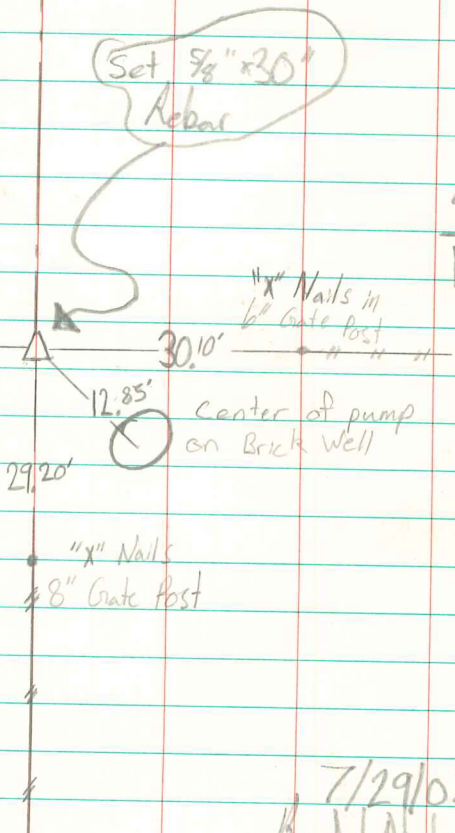 Set 5/8" x30"
Rebar
"X" Nails in
6" Gate Post
30.10'
12.85'
Center of pump
on Brick Well
29.20'
"X" Nails
8" Gate Post
7/29/0